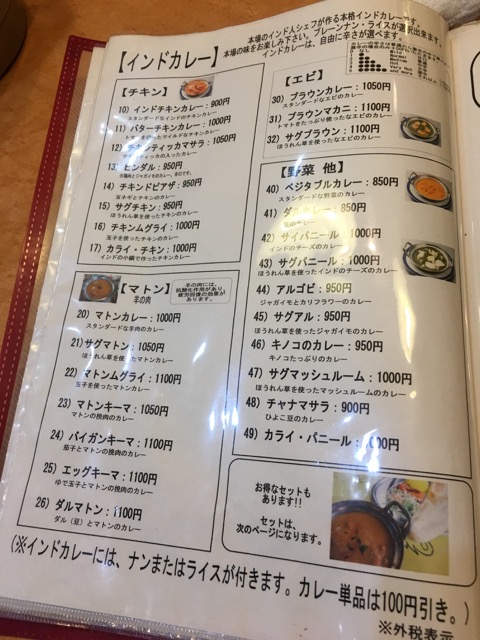 【インドカレー】
本場のインド人シェフが作る本格インドカレーです。
本場の味をお楽しみ下さい。プレーンナン・ライスが選択出来ます。
インドカレーは、自由に辛さが選べます。
【チキン】
10) インドチキンカレー：900円
スタンダードなインドのチキンカレー
11) バターチキンカレー：1000円
トマトを使ったマイルドなチキンカレー
12) チキンティッカマサラ：1050円
チキンティッカの入ったカレー
13) ビンダル：950円
14) チキンドピアザ：950円
玉ネギとチキンのカレー
15) サグチキン：950円
ほうれん草を使ったチキンのカレー
16) チキンムグライ：1000円
玉子を使ったチキンのカレー
17) カライ・チキン：1000円
インドの小鍋で作ったチキンカレー
【マトン】
羊の肉
羊の肉には、
抗酸化作用があり
疲労回復の効果が
あります。
20) マトンカレー：1000円
スタンダードな羊肉のカレー
21) サグマトン：1050円
ほうれん草を使ったマトンのカレー
22) マトンムグライ：1100円
玉子を使ったマトンのカレー
23) マトンキーマ：1050円
マトンの挽肉のカレー
24) バイガンキーマ：1100円
茄子とマトンの挽肉のカレー
25) エッグキーマ：1100円
ゆで玉子とマトンの挽肉のカレー
26) ダルマトン：1100円
ダル（豆）とマトンのカレー
【エビ】
30) プラウンカレー：1050円
スタンダードなエビのカレー
31) プラウンマカニ：1100円
トマトをたっぷり使ったなエビのカレー
32) サグプラウン：1100円
ほうれん草を使ったなエビのカレー
【野菜 他】
40) ベジタブルカレー：850円
スタンダードな野菜のカレー
41) ダルカレー：850円
42) サイパニール：1000円
インドのチーズのカレー
43) サグパニール：1000円
ほうれん草を使ったインドのチーズのカレー
44) アルゴビ：950円
ジャガイモとカリフラワーのカレー
45) サグアル：950円
ほうれん草を使ったジャガイモのカレー
46) キノコのカレー：950円
キノコたっぷりのカレー
47) サグマッシュルーム：1000円
ほうれん草を使ったマッシュルームのカレー
48) チャナマサラ：900円
ひよこ豆のカレー
49) カライ・パニール：1000円
お得なセットも
あります!!
セットは、
次のページになります。
(※インドカレーには、ナンまたはライスが付きます。カレー単品は100円引き。)
※外税表示